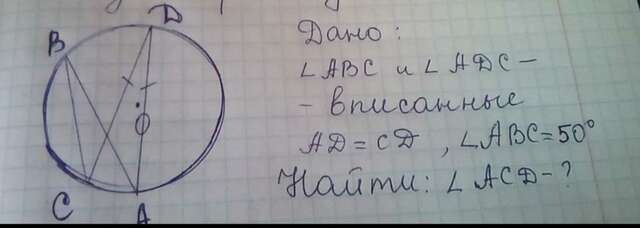 D
B
O
C
A
Дано:
∠ABC и ∠ADC -
- вписанные
AD = CD, ∠ABC = 50°
Найти: ∠ACD - ?